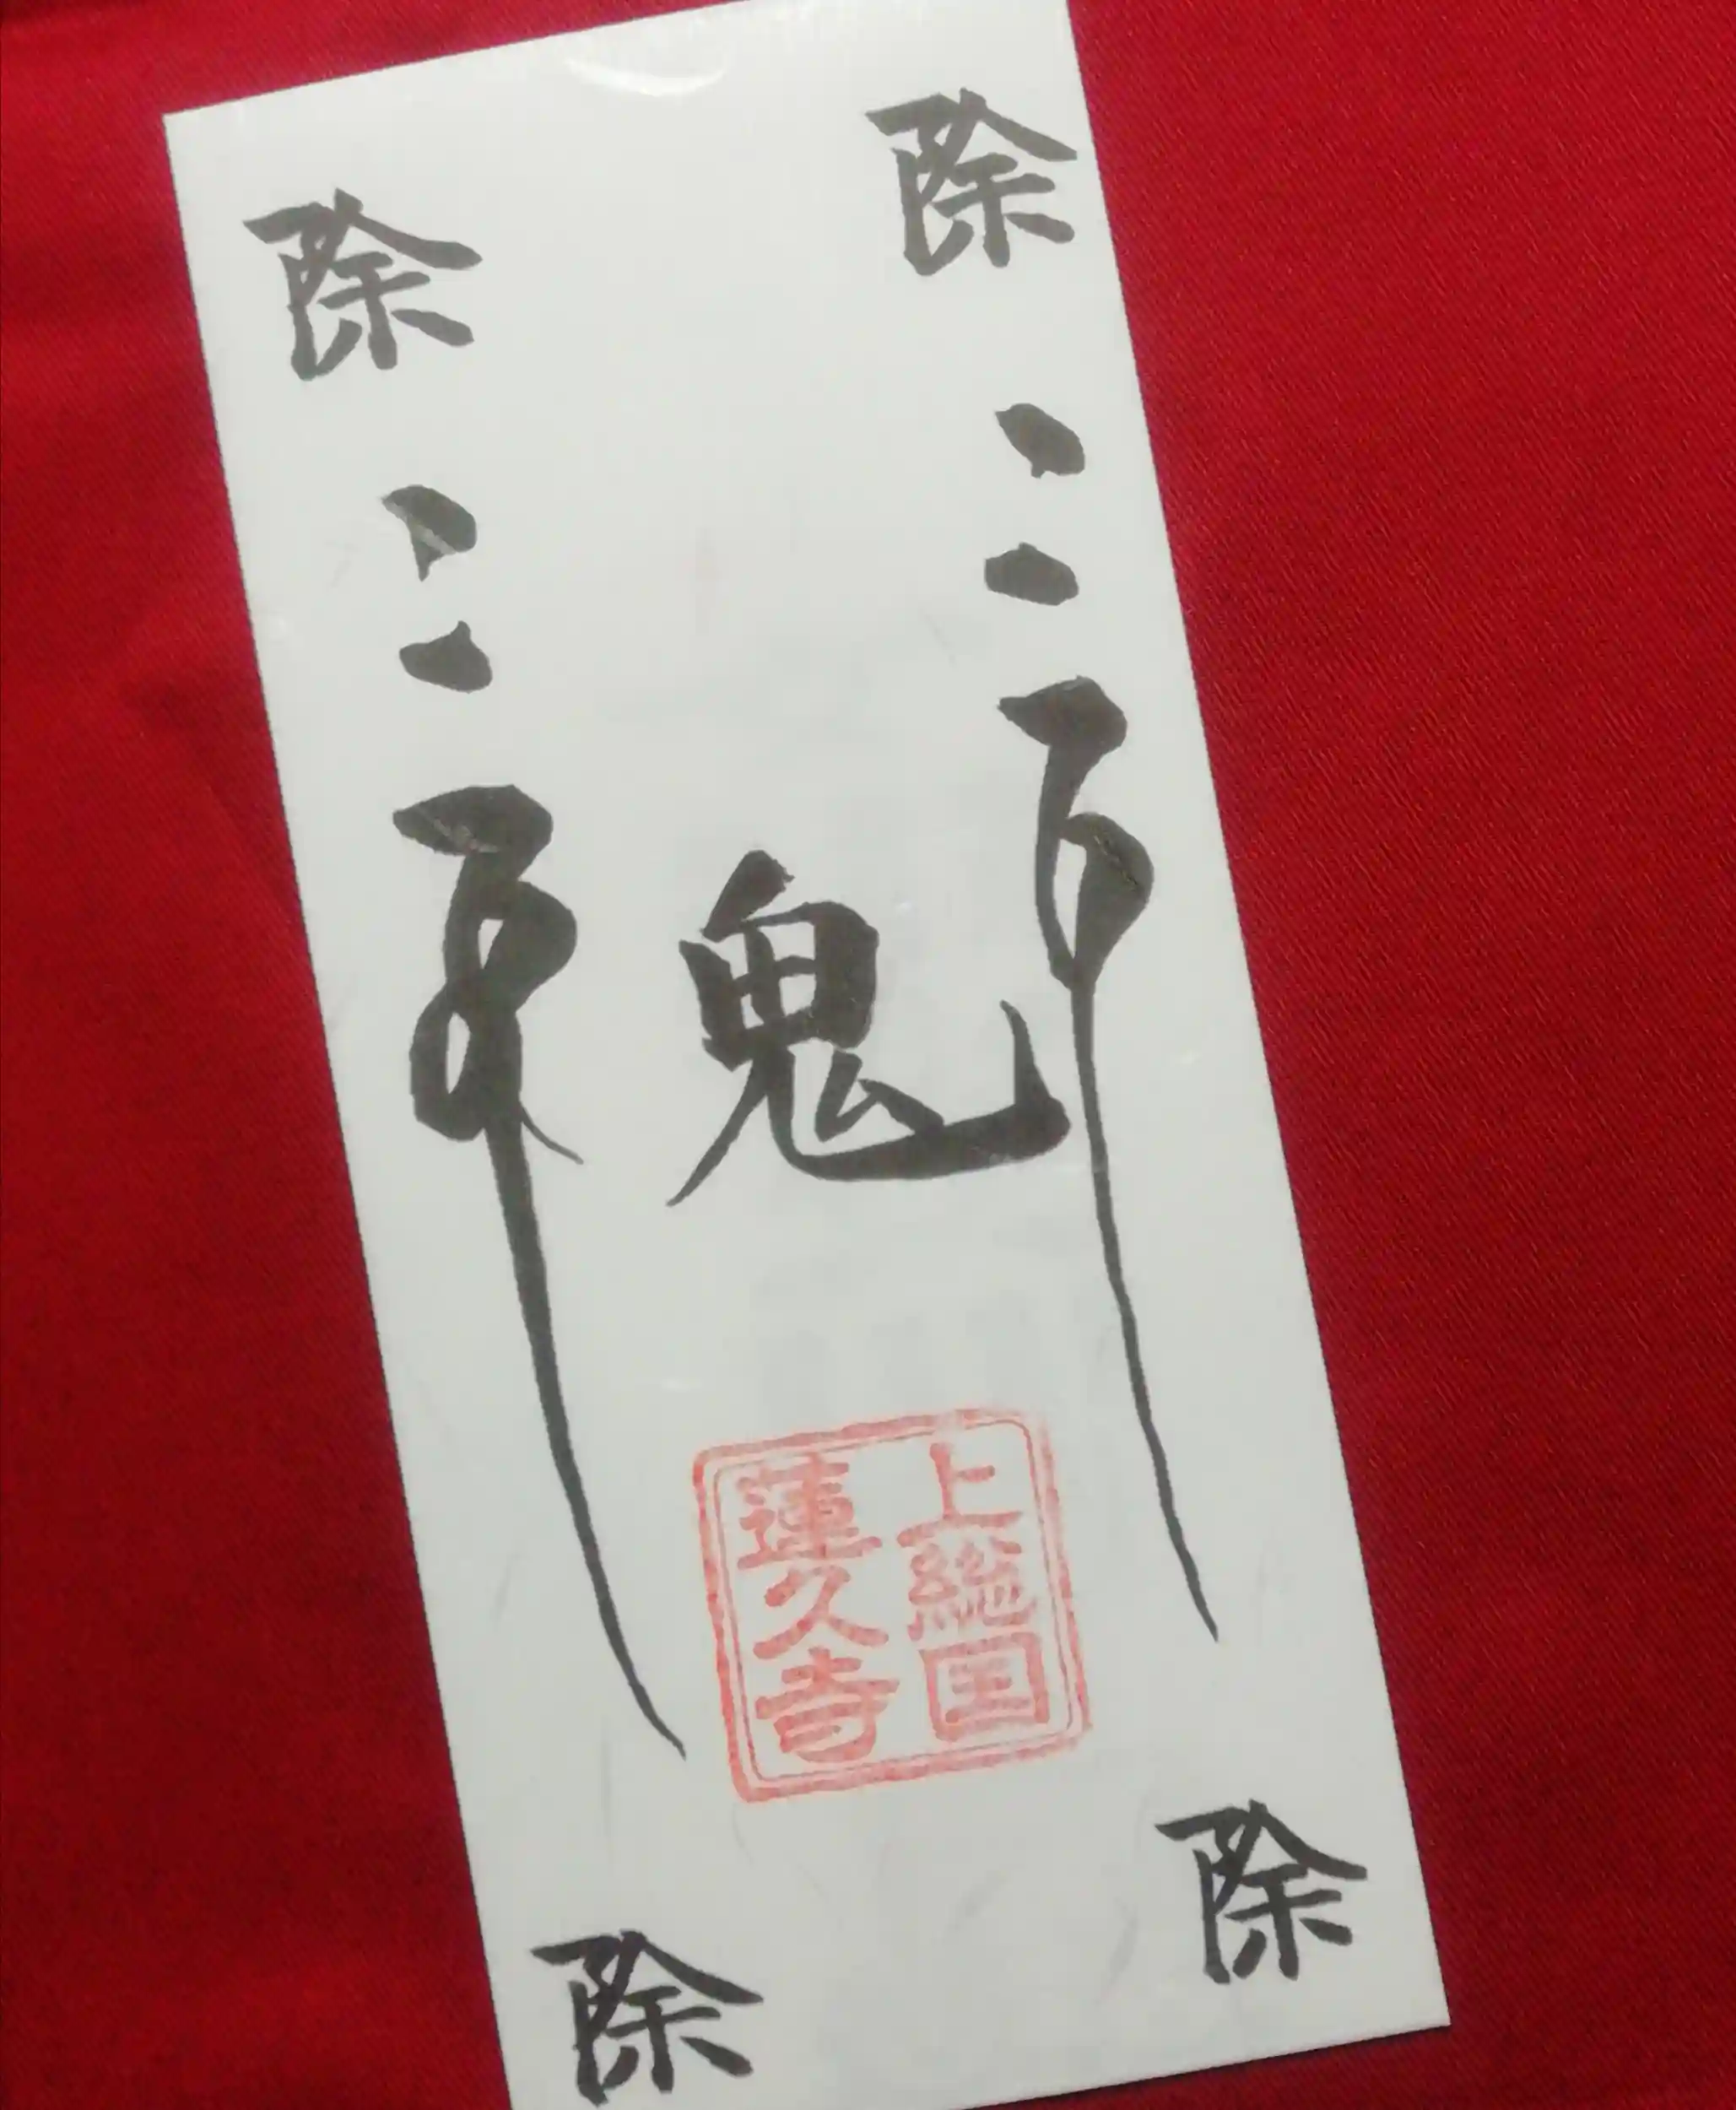 除
除
鬼
上総国
蓮久寺
除
除